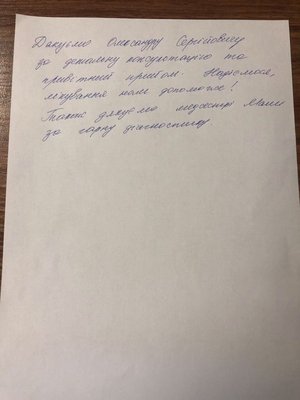 Дякуємо Олександру Сергійовичу
за детальну консультацію та
привітний прийом. Надіємося,
лікування нам допоможе!
Також дякуємо медсестрі
за гарну діагностику